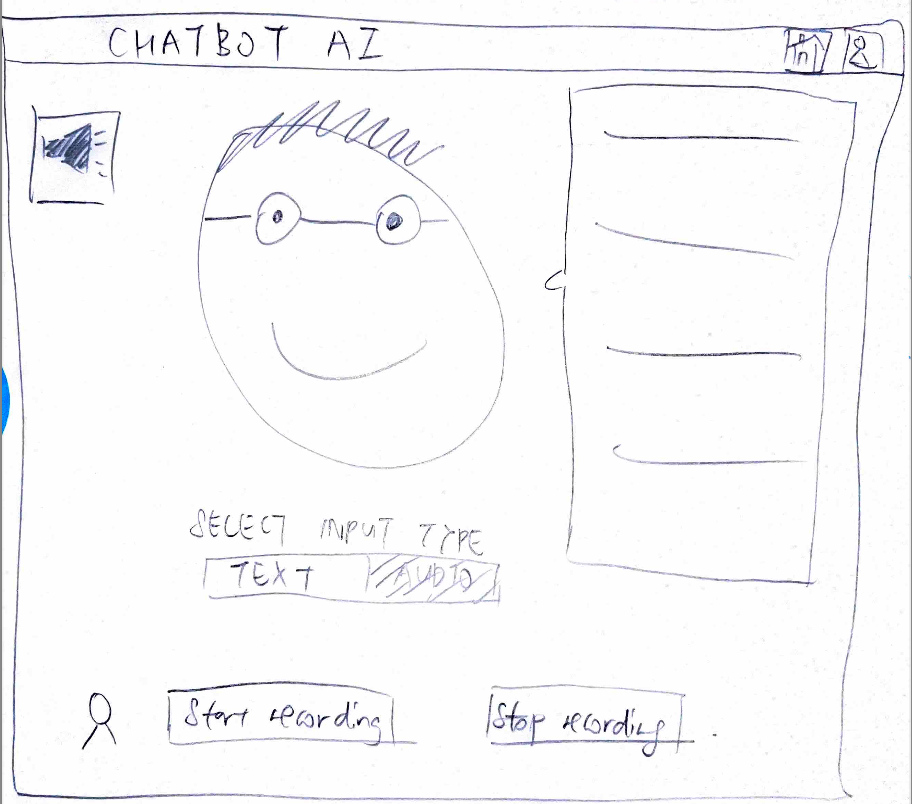 CHATBOT AI
SELECT INPUT TYPE
TEXT AUDIO
Start recording Stop recording